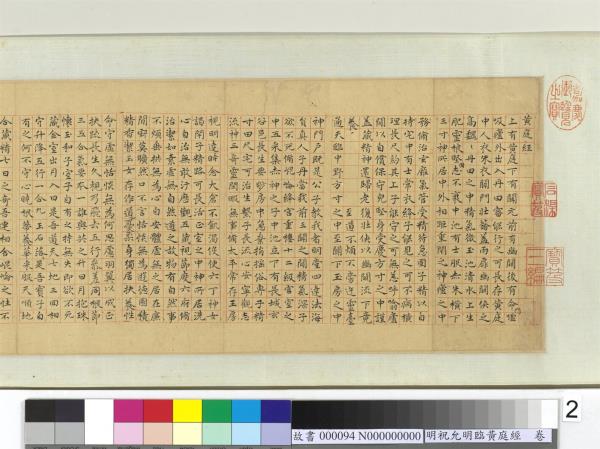 黃庭經
上有黃庭下有關元前有幽闕後有命
吸廬外出入丹田審能行之可長存黃庭
中人衣朱衣關門壯籥蓋兩扉幽闕俠之
高巍巍丹田之中精氣微玉池清水上生
肥靈根堅志不衰中池有士服赤朱橫下
三寸神所居中外相距重閉之神廬之中
務修治玄膺氣管受精符急固子精以自
持宅中有士常衣絳子能見之可不病橫
理長尺約其上子能守之可無恙呼噏廬
間以自償保守完堅身受慶方寸之中謹
蓋藏精神還歸老復壯俠以幽闕流下竟
養 至道不煩不旁迕靈臺
通天臨中野方寸之中至關下玉房之中
神門戶既是公子教我者明堂四達法海
員真人子丹當我前三關之間精氣深子
欲不死修崐崘絳宮重樓十二級宮室之
中五采集赤神之子中池立下有長城玄
谷邑長生要眇房中棄捐搖俗專子精
寸田尺宅可治生繫子長流心安寧觀志
流神三奇靈閑暇無事修太平常存玉房
視明達時念大倉不飢渴役使六丁神女
謁閉子精路可長活正室之中神所居洗
心自治無敢汙歷觀五藏視節度六府修
治潔如素虛無自然道之故物有自然事
不煩垂拱無為心自安體虛無之居在廉
間寂寞曠然口不言恬惔無為遊德園積
精香潔玉女存作道憂柔身獨居扶養性
命守虛無恬惔無為何思慮羽翼以成正
扶疏長生久視乃飛去五行參差同根節
三五合氣要本一誰與共之升日月抱珠
懷玉和子室子自有之持無失即欲不死
藏金室出月入日是吾道天七地三回相
守升降五行一合九玉石落落是吾寶子自
有之何不守心曉根蔕養華采服天順地
合藏精七日之奇吾連相合崐崘之性不
嘉慶御覽之寶
石渠寶笈
寶笈三編
2
故書 000094 N000000000 明祝允明臨黃庭經 卷